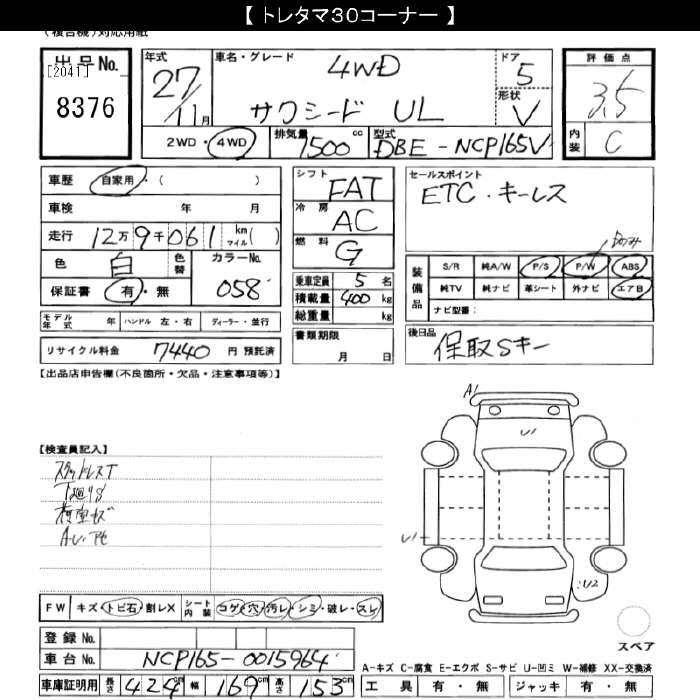 【 トレタマ30コーナー 】
(複合機)対応用紙
出品No. [2041] 8376
年式 27/11月
車名・グレード 4WD サクシード UL
ドア 5
形状 V
2WD・4WD
排気量 1500cc
型式 DBE-NCP165V
評価点 3.5
内装 C
車歴 自家用・( )
車検 年 月
走行 12万9千061 km マイル( )
色 白 色替 カラーNo. 058
保証書 有・無
モデル年式 年 ハンドル 左・右 ディーラー・並行
リサイクル料金 7440 円 預託済
シフト FAT
冷房 AC
燃料 G
乗車定員 5 名
積載量 400 kg
総重量 kg
書類期限 月 日
セールスポイント
ETC・キーレス
装備品 S/R 純A/W P/S P/W ABS
純TV 純ナビ 革シート 外ナビ エアB
ナビ型番:
後日品 保取Sキー
【出品店申告欄(不良箇所・欠品・注意事項等)】
【検査員記入】
スタッドレスT
A1
U1
U1
U2
FW キズ・トビ石・割レX シート内装 コゲ・穴・汚レ・シミ・破レ・スレ
登録No.
車台No. NCP165-0015964
車庫証明用 長さ 424cm 幅 169cm 高さ 153cm
スペア
A-キズ C-腐食 E-エクボ S-サビ U-凹ミ W-補修 XX-交換済
工具 有・無 ジャッキ 有・無